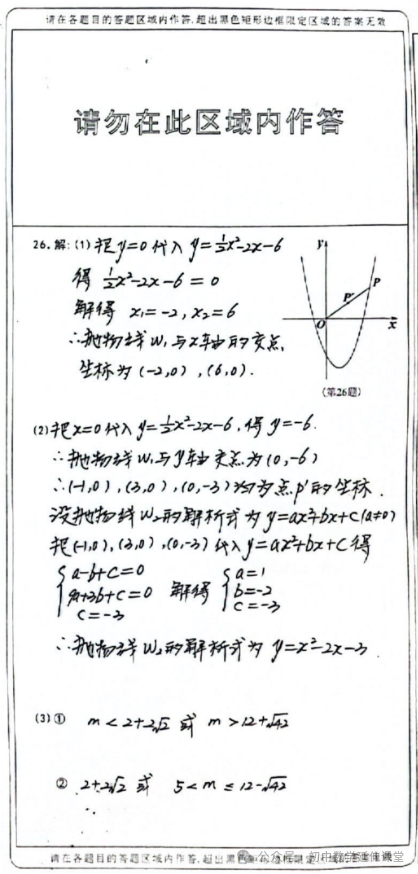 请在各题目的答题区域内作答,超出黑色矩形边框限定区域的答案无效
请勿在此区域内作答
26.解:(1)把y=0代入y=½x²-2x-6
得 ½x²-2x-6=0
解得 x₁=-2,x₂=6
∴抛物线W₁与x轴的交点
坐标为(-2,0),(6,0).
y
P
P'
O
x
(第26题)
(2)把x=0代入y=½x²-2x-6,得y=-6.
∴抛物线W₁与y轴交点为(0,-6)
∴(-1,0),(3,0),(0,-3)均为点P'的坐标.
设抛物线W₂的解析式为y=ax²+bx+c(a≠0)
把(-1,0),(3,0),(0,-3)代入y=ax²+bx+c得
{a-b+c=0 {a=1
9a+3b+c=0 解得 b=-2
c=-3 c=-3
∴抛物线W₂的解析式为y=x²-2x-3.
(3)① m<2+2√2 或 m>12+√42
② 2+2√2 或 5<m≤12-√42
公众号·初中数学延伸课堂
请在各题目的答题区域内作答,超出黑色